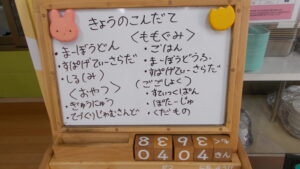 きょうのこんだて
・まーぼうどん
・すぱげてぃーさらだ
・しる(み)
<おやつ>
・ぎゅうにゅう
・てづくりじゃむさんど
<ももぐみ>
・ごはん
・まーぼうどうふ
・すぱげてぃーさらだ
<ごごしょく>
・すてぃっくぱん
・ぽたーじゅ
・くだもの